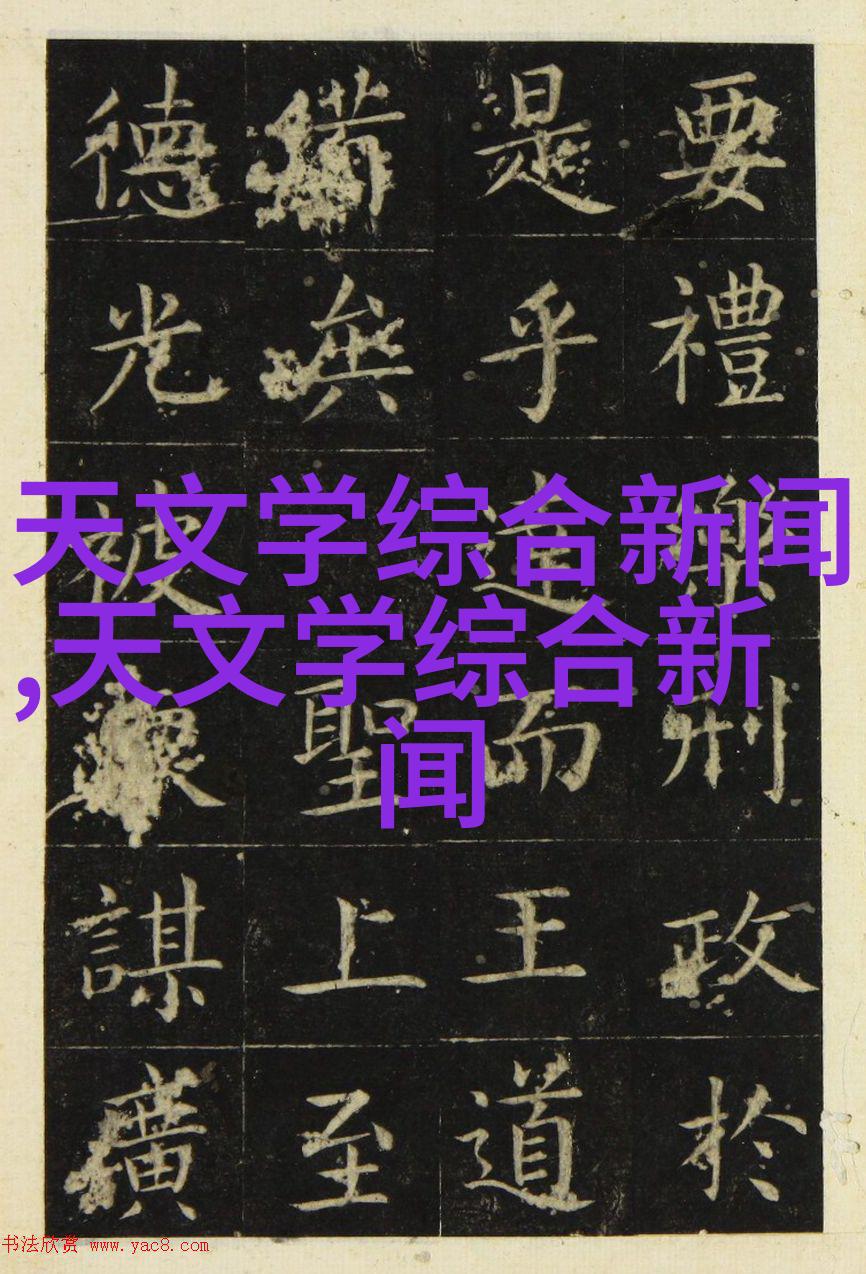 要禮樂刑政於
是乎達而王道
備無聖上至
德光被謀廣
天文学综合新闻
,天文学综合新
闻
书法欣赏 www.yac8.com